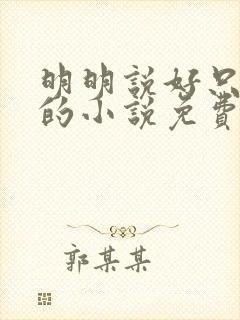 明明說好只
的小說免費
郭某某